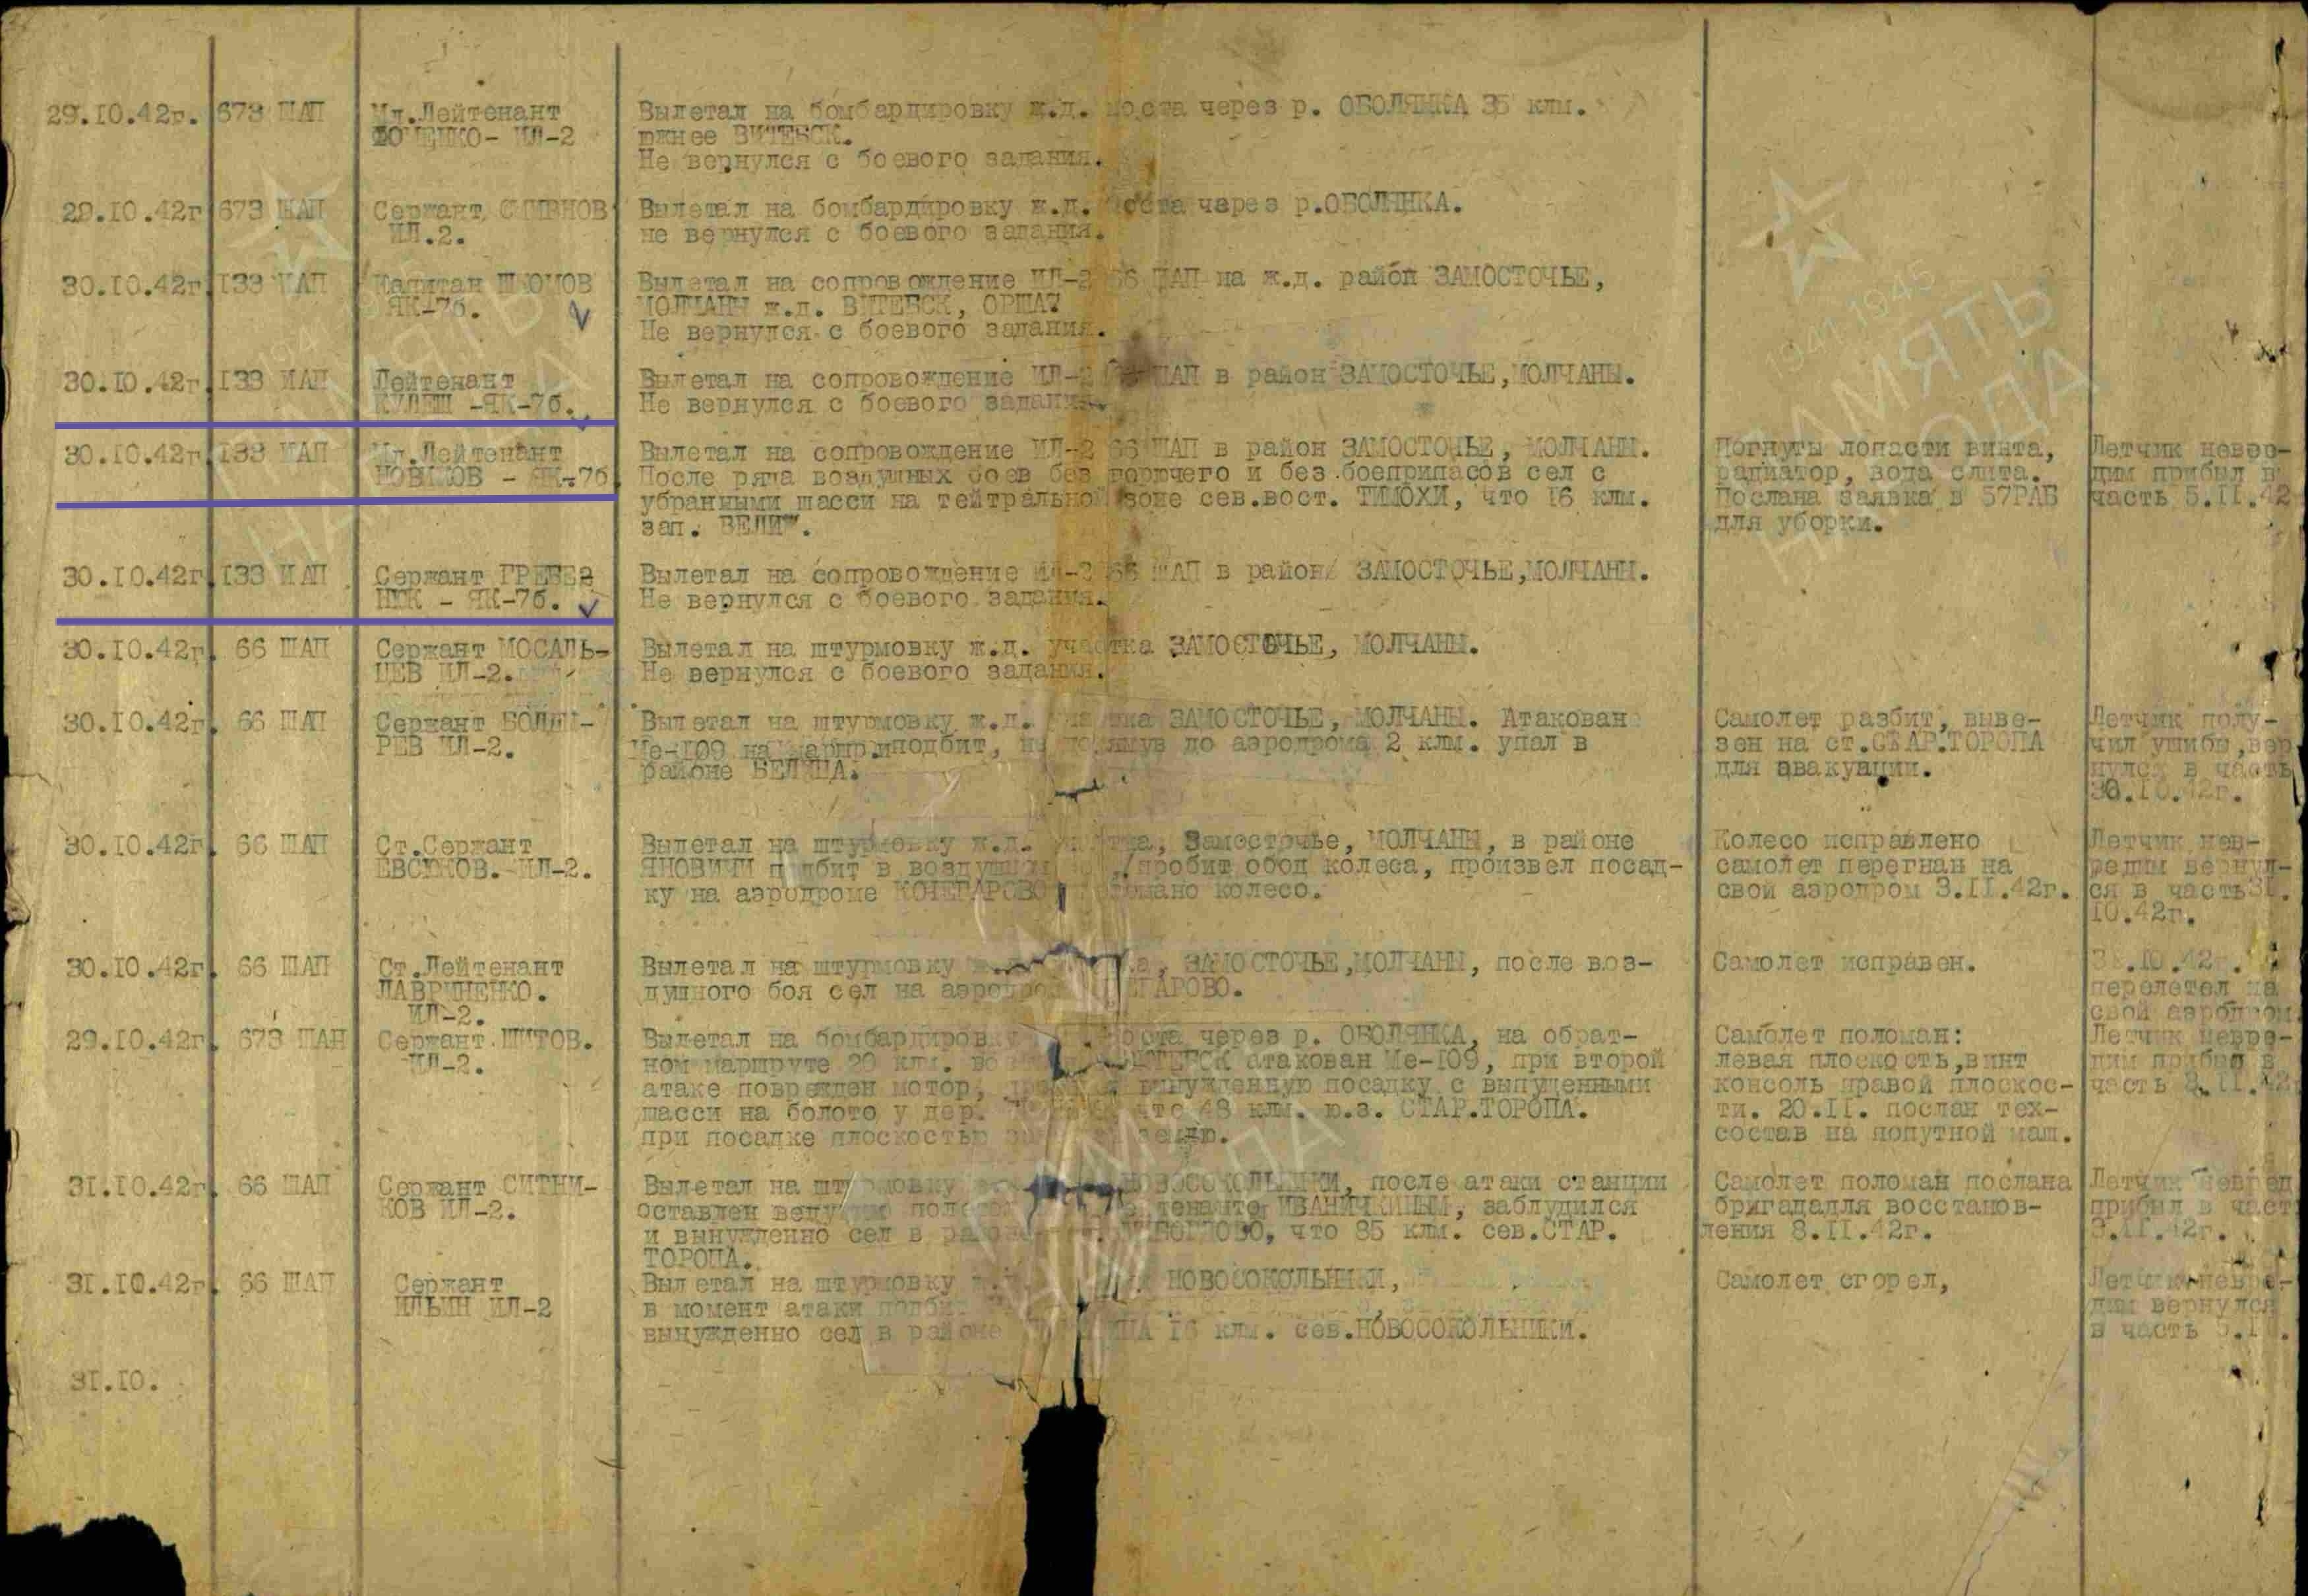 29.10.42г. 673 ШАП Мл.Лейтенант Вылетал на бомбардировку ж.д. моста через р. ОБОЛЯНКА 35 клм.
ИЛ-2 южнее ВИТЕБСК.
Не вернулся с боевого задания.
29.10.42г 673 ШАП Сержант СМИРНОВ Вылетал на бомбардировку ж.д. моста через р.ОБОЛЯНКА.
ИЛ.2. не вернулся с боевого задания.
30.10.42г. 133 ИАП Капитан Вылетал на сопровождение ИЛ-2 66 ШАП на ж.д. район ЗАМОСТОЧЬЕ,
ЯК-7б. МОЛЧАНЫ ж.д. ВИТЕБСК, ОРША.
Не вернулся с боевого задания.
30.10.42г. 133 ИАП Лейтенант Вылетал на сопровождение ИЛ-2 ШАП в район ЗАМОСТОЧЬЕ,МОЛЧАНЫ.
КУЛЕШ -ЯК-7б. Не вернулся с боевого задания.
30.10.42г. 133 ИАП Мл.Лейтенант Вылетал на сопровождение ИЛ-2 66 ШАП в район ЗАМОСТОЧЬЕ, МОЛЧАНЫ. Погнуты лопасти винта, Летчик невре-
НОВИКОВ - ЯК-7б После ряда воздушных боев без горючего и без боеприпасов сел с радиатор, вода слита. дим прибыл в
убранными шасси на тейтральной зоне сев.вост. ТИМОХИ, что 16 клм. Послана заявка в 57РАБ часть 5.11.42
зап. ВЕЛИЖ. для уборки.
30.10.42г. 133 ИАП Сержант ГРЕБЕ Вылетал на сопровождение ИЛ-2 66 ШАП в район ЗАМОСТОЧЬЕ,МОЛЧАНЫ.
НИК - ЯК-7б. Не вернулся с боевого задания.
30.10.42г. 66 ШАП Сержант МОСАЛЬ- Вылетал на штурмовку ж.д. участка ЗАМОСТОЧЬЕ, МОЛЧАНЫ.
ЦЕВ ИЛ-2. Не вернулся с боевого задания.
30.10.42г. 66 ШАП Сержант БОЛДЫ- Вылетал на штурмовку ж.д. участка ЗАМОСТОЧЬЕ, МОЛЧАНЫ. Атакован Самолет разбит, выве- Летчик полу-
РЕВ ИЛ-2. Ме-109 подбит, не до аэродрома 2 клм. упал в зен на ст.СТАР.ТОРОПА чил ушибы,вер
районе для авакуации. нулся в часть
30.10.42г.
30.10.42г. 66 ШАП Ст.Сержант Вылетал на штурмовку ж.д. участка, Замосточье, МОЛЧАНЫ, в районе Колесо исправлено Летчик нев-
ЕВСЮКОВ. ИЛ-2. ЯНОВИЧИ подбит в воздушном /пробит обод колеса, произвел посад- самолет перегнан на редим вернул-
ку на аэродроме КОЧЕГАРОВО колесо. свой аэродром 3.11.42г. ся в часть
10.42г.
30.10.42г. 66 ШАП Ст.Лейтенант Вылетал на штурмовку ЗАМОСТОЧЬЕ,МОЛЧАНЫ, после воз- Самолет исправен. 31.10.42г.
ЛАВРИНЕНКО. душного боя сел на аэродром перелетел на
ИЛ-2. свой аэродром
29.10.42г. 673 ШАП Сержант ШИТОВ. Вылетал на бомбардировку моста через р. ОБОЛЯНКА, на обрат- Самолет поломан: Летчик невре-
ИЛ-2. ном маршруте 20 клм. ВИТЕБСК атакован Ме-109, при второй левая плоскость,винт дим прибыл в
атаке поврежден мотор, вынужденную посадку с выпущенными консоль правой плоскос- часть 8.11.42
шасси на болото у дер. что 48 клм. ю.з. СТАР.ТОРОПА. ти. 20.11. послан тех-
при посадке плоскостью землю. состав на попутной маш.
31.10.42г. 66 ШАП Сержант СИТНИ- Вылетал на штурмовку НОВОСОКОЛЬНИКИ, после атаки станции Самолет поломан послана Летчик невред
КОВ ИЛ-2. оставлен ведущим ИВАНИЧКИНЫМ, заблудился бригададля восстанов- прибыл в част
и вынужденно сел в районе что 85 клм. сев.СТАР. ления 8.11.42г. 3.11.42г.
ТОРОПА.
31.10.42г. 66 ШАП Сержант Вылетал на штурмовку НОВОСОКОЛЬНИКИ, Самолет сгорел, Летчик невре-
ИЛЬИН ИЛ-2 в момент атаки подбит дим вернулся
вынужденно сел в районе 16 клм. сев.НОВОСОКОЛЬНИКИ. в часть
31.10.
1941 1945
ПАМЯТЬ
НАРОДА